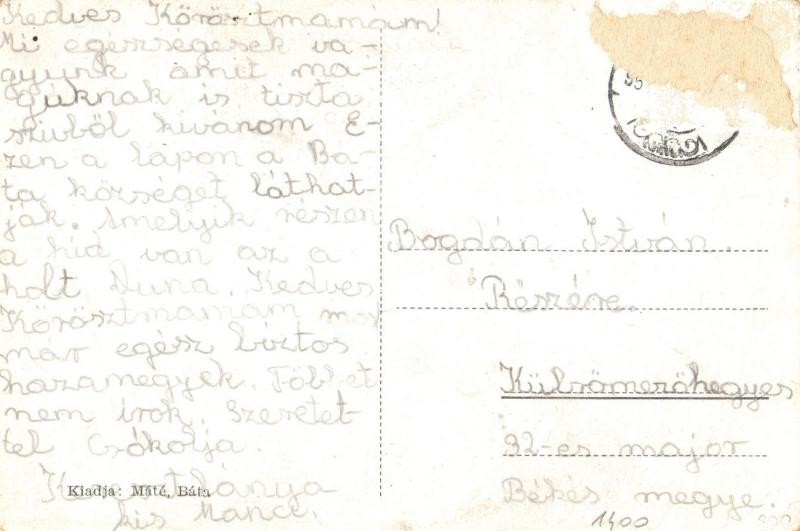 Kedves Körösztmamám!
Mi egészségesek va-
gyunk amit ma-
guknak is tiszta
szivből kivánom E-
zen a lapon a Bá-
ta községet láthat-
ják. Amelyik részen
a hid van az a
holt Duna. Kedves
Körösztmamám
már egész biztos
hazamegyek. Többet
nem irok. Szeretet-
tel Csókolja.
kis
Kiadja: Máté, Báta
Bogdán István.
Részére.
Külsőmezőhegyes
32-es major
Békés megye.
1400